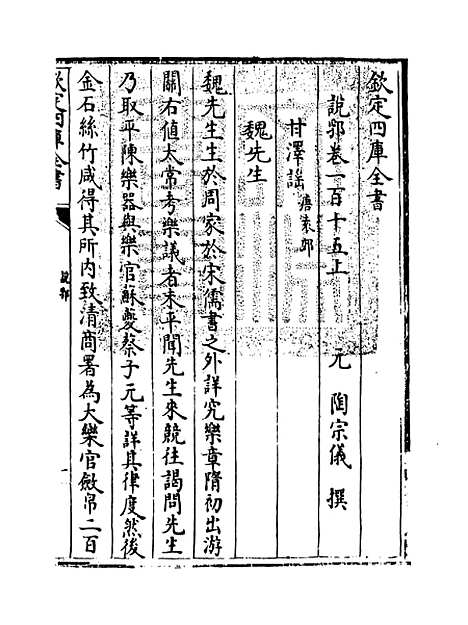 欽定四庫全書
說郛卷一百十五上
元 陶宗儀 撰
甘澤謡 唐袁郊
魏先生
魏先生生於周家於宋儒書之外詳究樂章隋初出游
關右值太常考樂議者未平聞先生來競往謁問先生
乃取平陳樂器與樂官蘇夔蔡子元等詳其律度然後
金石絲竹咸得其所内致清商署為大樂官斂帛二百
欽定四庫全書
說郛
一